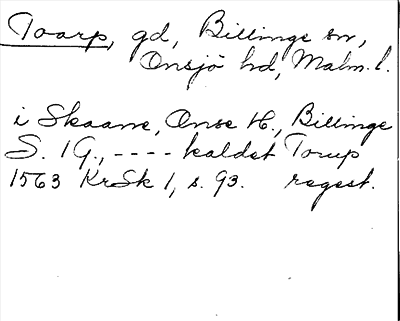 Toarp, gd, Billinge sn,
Onsjö hd, Malm. l.
i Skaane, Onse H., Billinge
S. 1 G., ---- kaldet Torup
1563 KrSk 1, s. 93. regest.